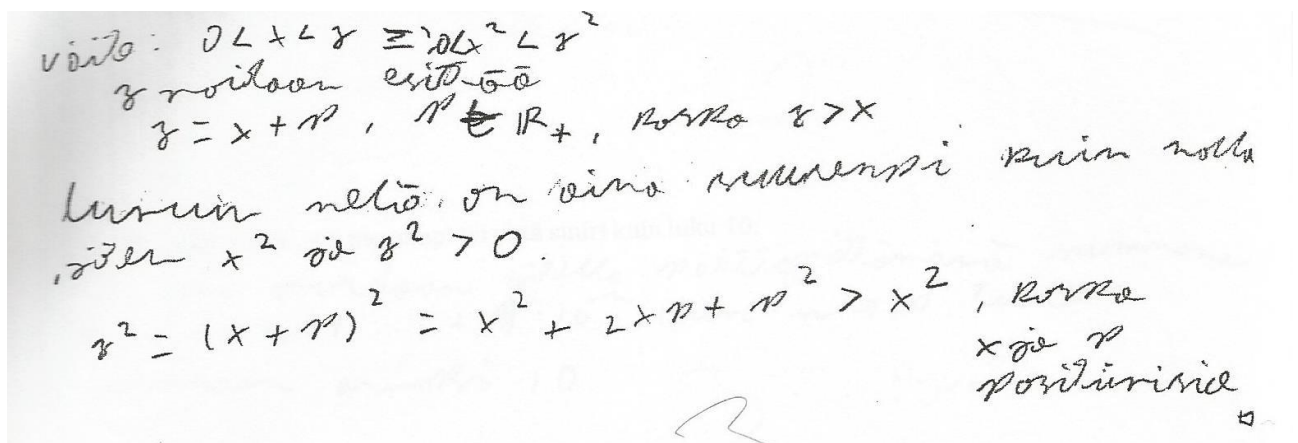 väite: 0 < x < y ≡> 0 < x² < y²
y voidaan esittää
y = x + p, p ∈ ℝ₊, koska y > x
luvun neliö on aina suurempi kuin nolla
, joten x² ja y² > 0.
y² = (x + p)² = x² + 2xp + p² > x², koska
x ja p
positiivisia
□